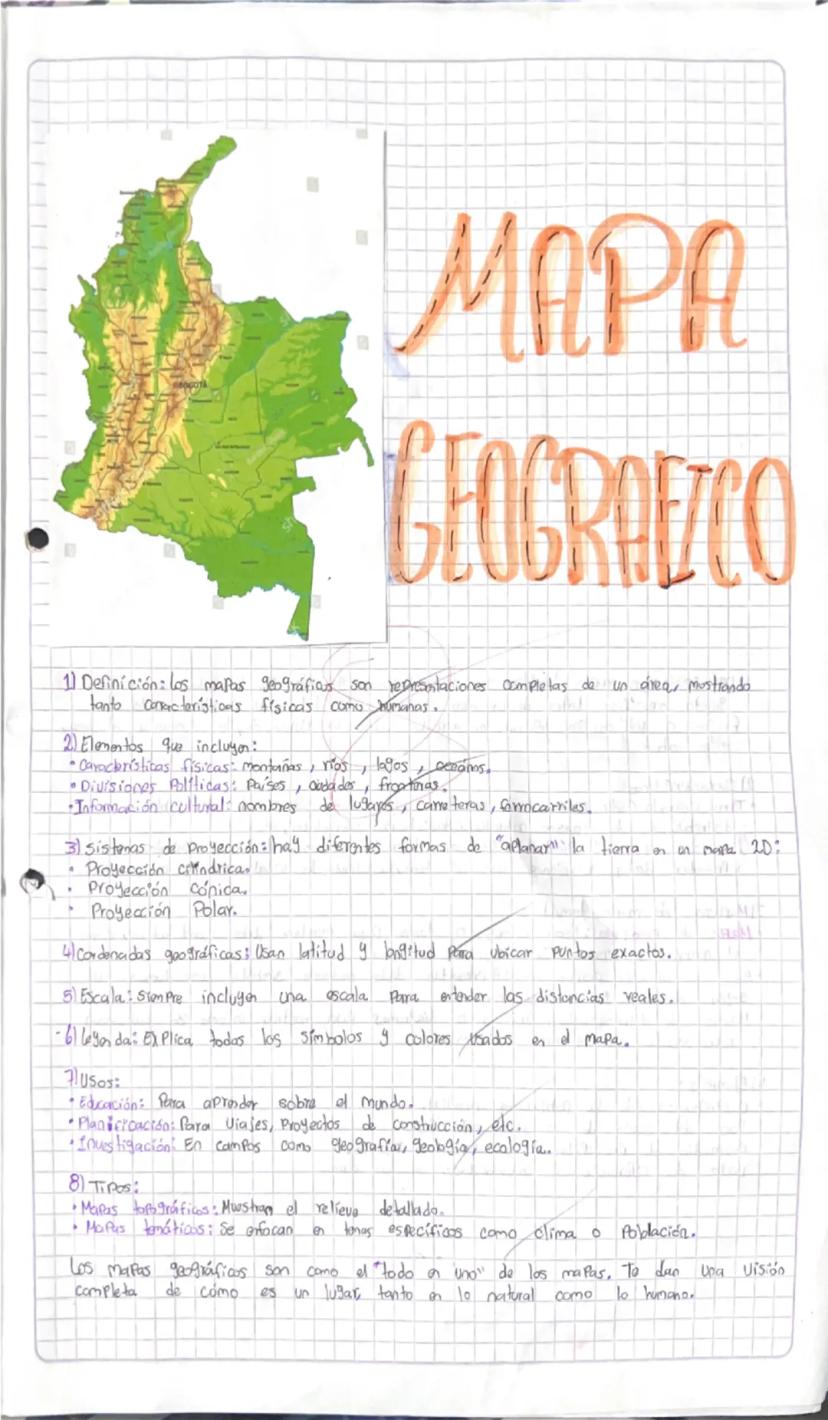 MAPA
GEOGRAFICO
BOGOTÁ
1) Definición: los mapas geográficos son representaciones completas de un área, mostrando
tanto características físicas como humanas.
2) Elementos que incluyen:
• Características físicas: montañas, ríos, lagos, océanos.
• Divisiones Políticas: Países, ciudades, fronteras.
• Información cultural: nombres de lugares, carreteras, ferrocarriles.
3) Sistemas de Proyección: hay diferentes formas de "aplanar" la tierra en un mapa 2D:
• Proyección cilíndrica.
• Proyección cónica.
• Proyección Polar.
4) Cordenadas geográficas: Usan latitud y longitud Para ubicar puntos exactos.
5) Escala: Siempre incluyen una escala Para entender las distancias reales.
6) leyenda: Explica todos los símbolos y colores usados en el mapa.
7) Usos:
• Educación: Para aprender sobre el mundo.
• Planificación: Para viajes, Proyectos de construcción, etc.
• Investigación: En campos como geografía, geología, ecología.
8) Tipos:
• Mapas topográficos: Muestran el relieve detallado.
• Mapas temáticos: Se enfocan en temas específicos como clima o Población.
Los mapas geográficos son como el "todo en uno" de los mapas. Te dan una visión
completa de cómo es un lugar, tanto en lo natural como lo humano.